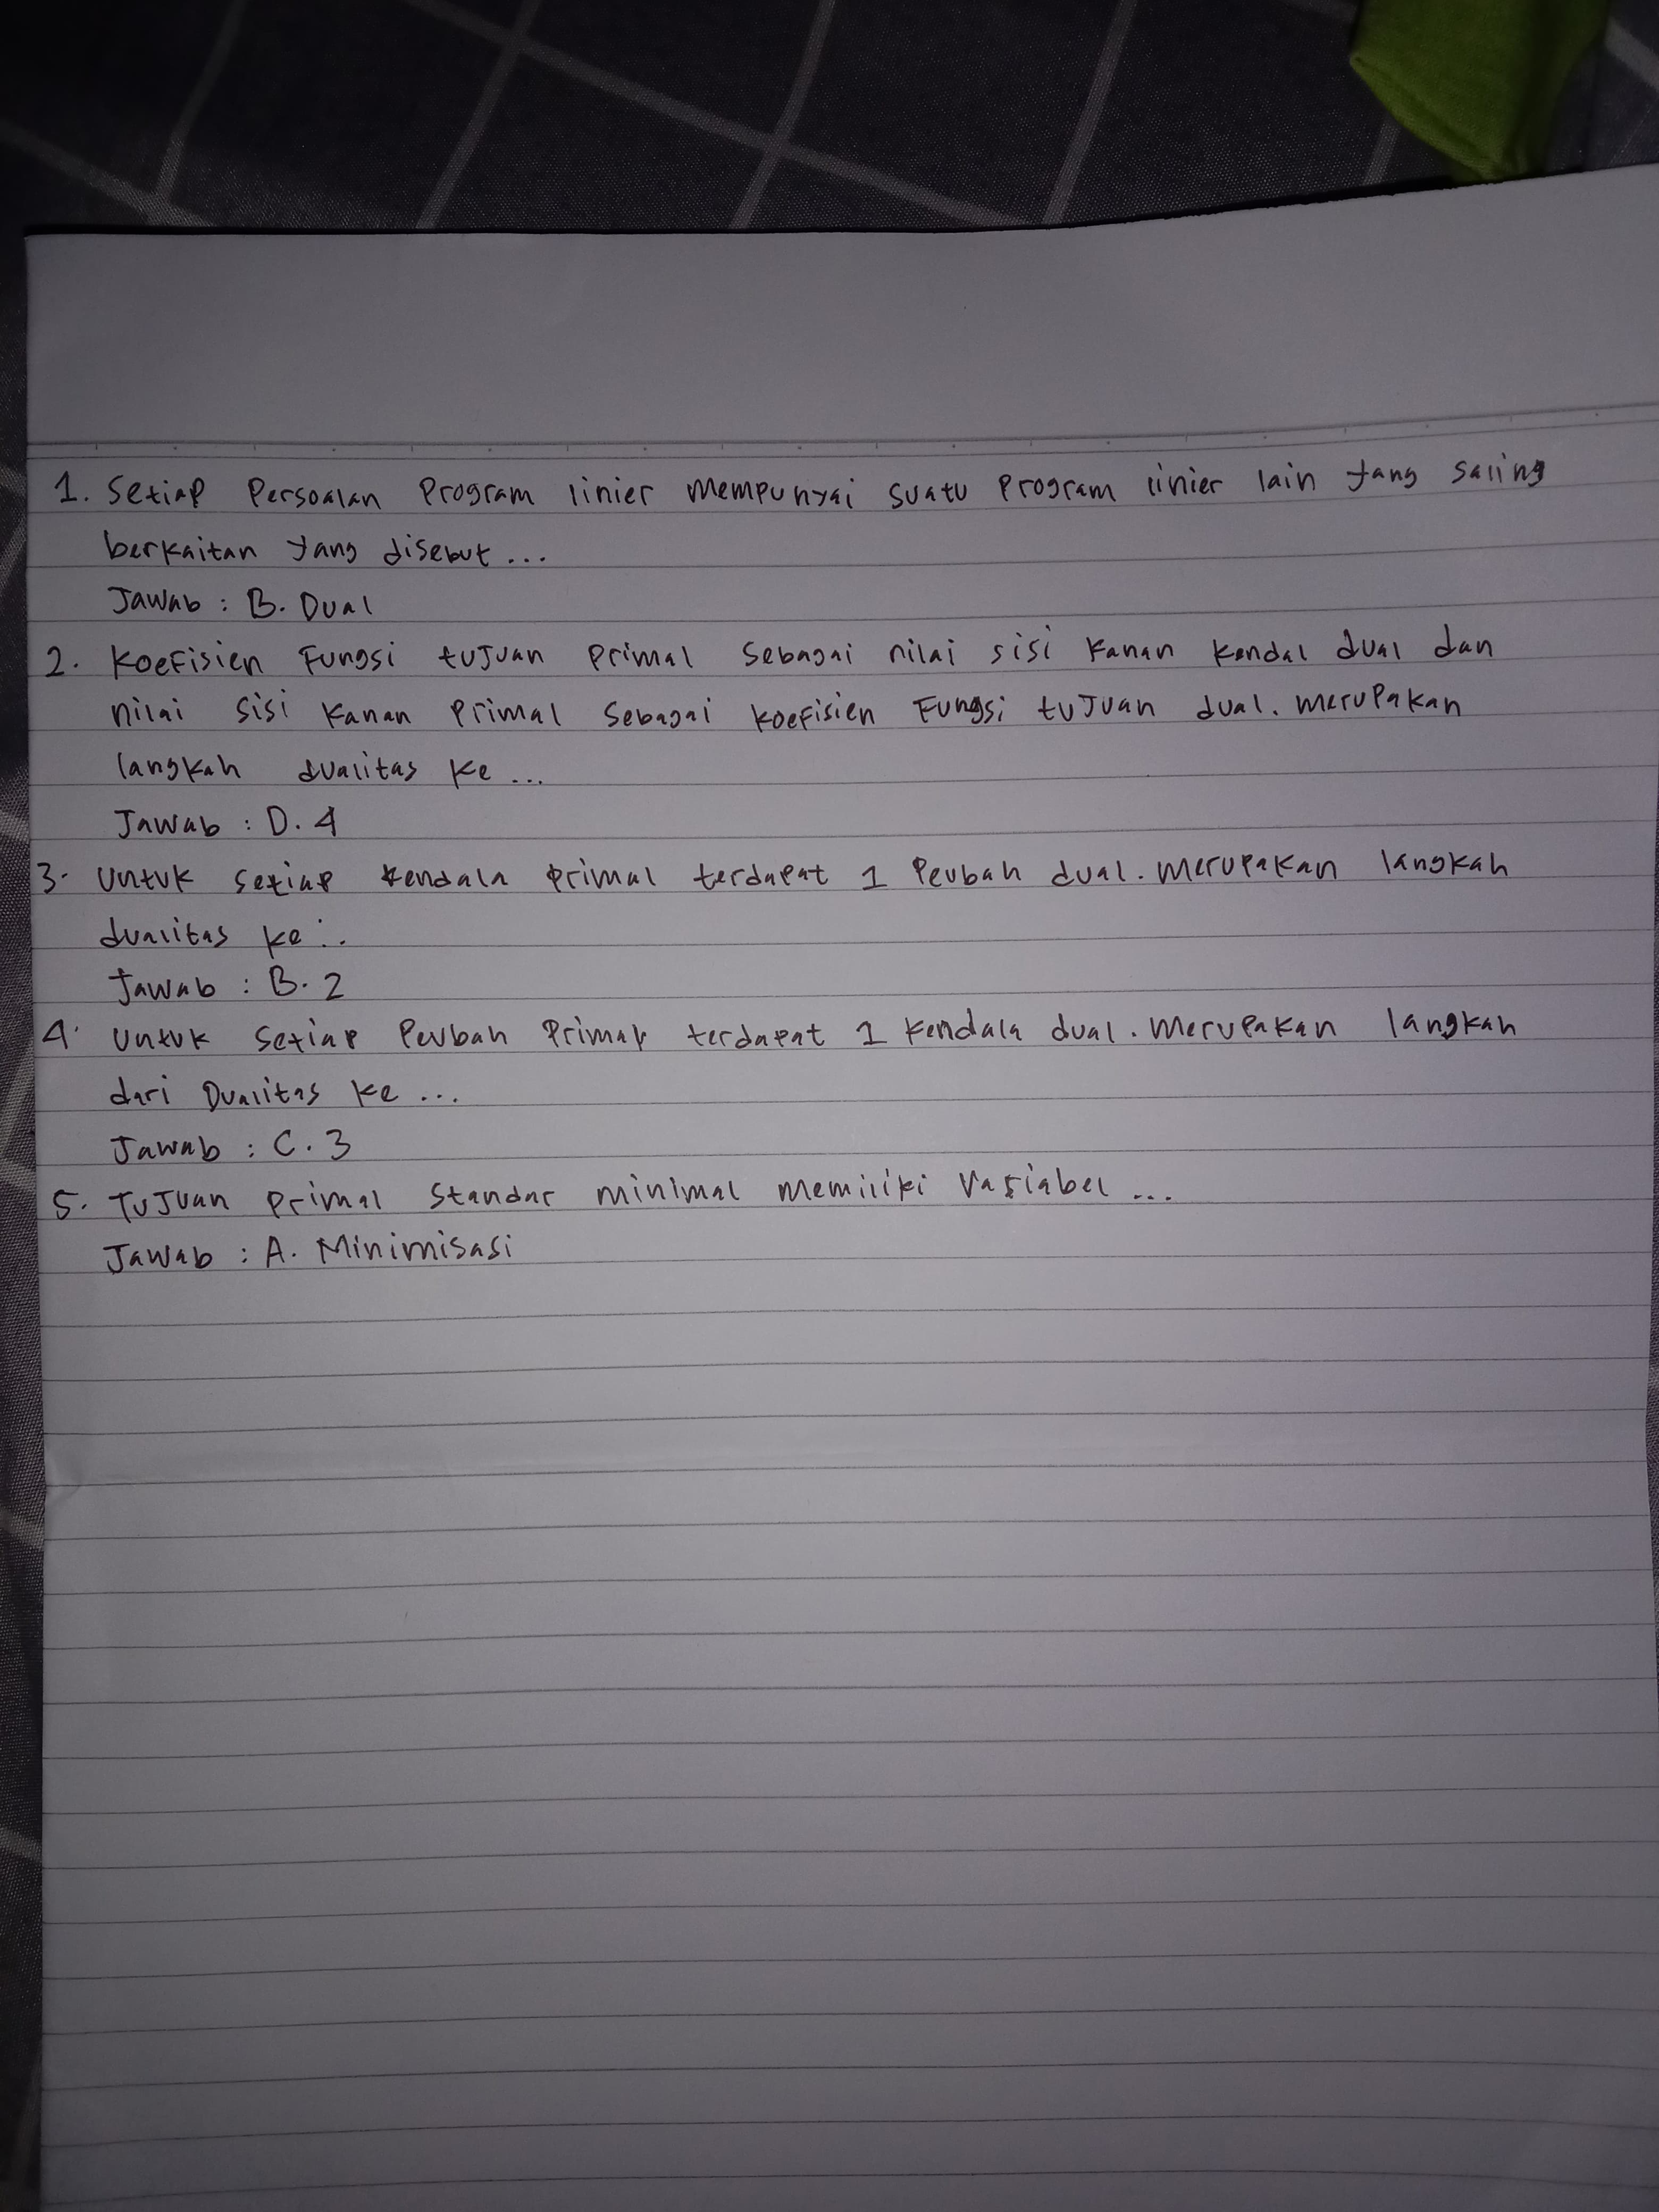 1. Setiap Persoalan Program linier mempunyai suatu Program linier lain yang saling
berkaitan yang disebut ...
Jawab : B. Dual
2. Koefisien Fungsi tujuan Primal sebagai nilai sisi kanan kendal dual dan
nilai sisi kanan Primal sebagai koefisien Fungsi tujuan dual. merupakan
langkah dualitas ke ...
Jawab : D. 4
3. Untuk setiap kendala primal terdapat 1 Peubah dual. merupakan langkah
dualitas ke ...
Jawab : B. 2
4. Untuk setiap Peubah Primal terdapat 1 kendala dual. merupakan langkah
dari Dualitas ke ...
Jawab : C. 3
5. Tujuan Primal Standar minimal memiliki Variabel ...
Jawab : A. Minimisasi